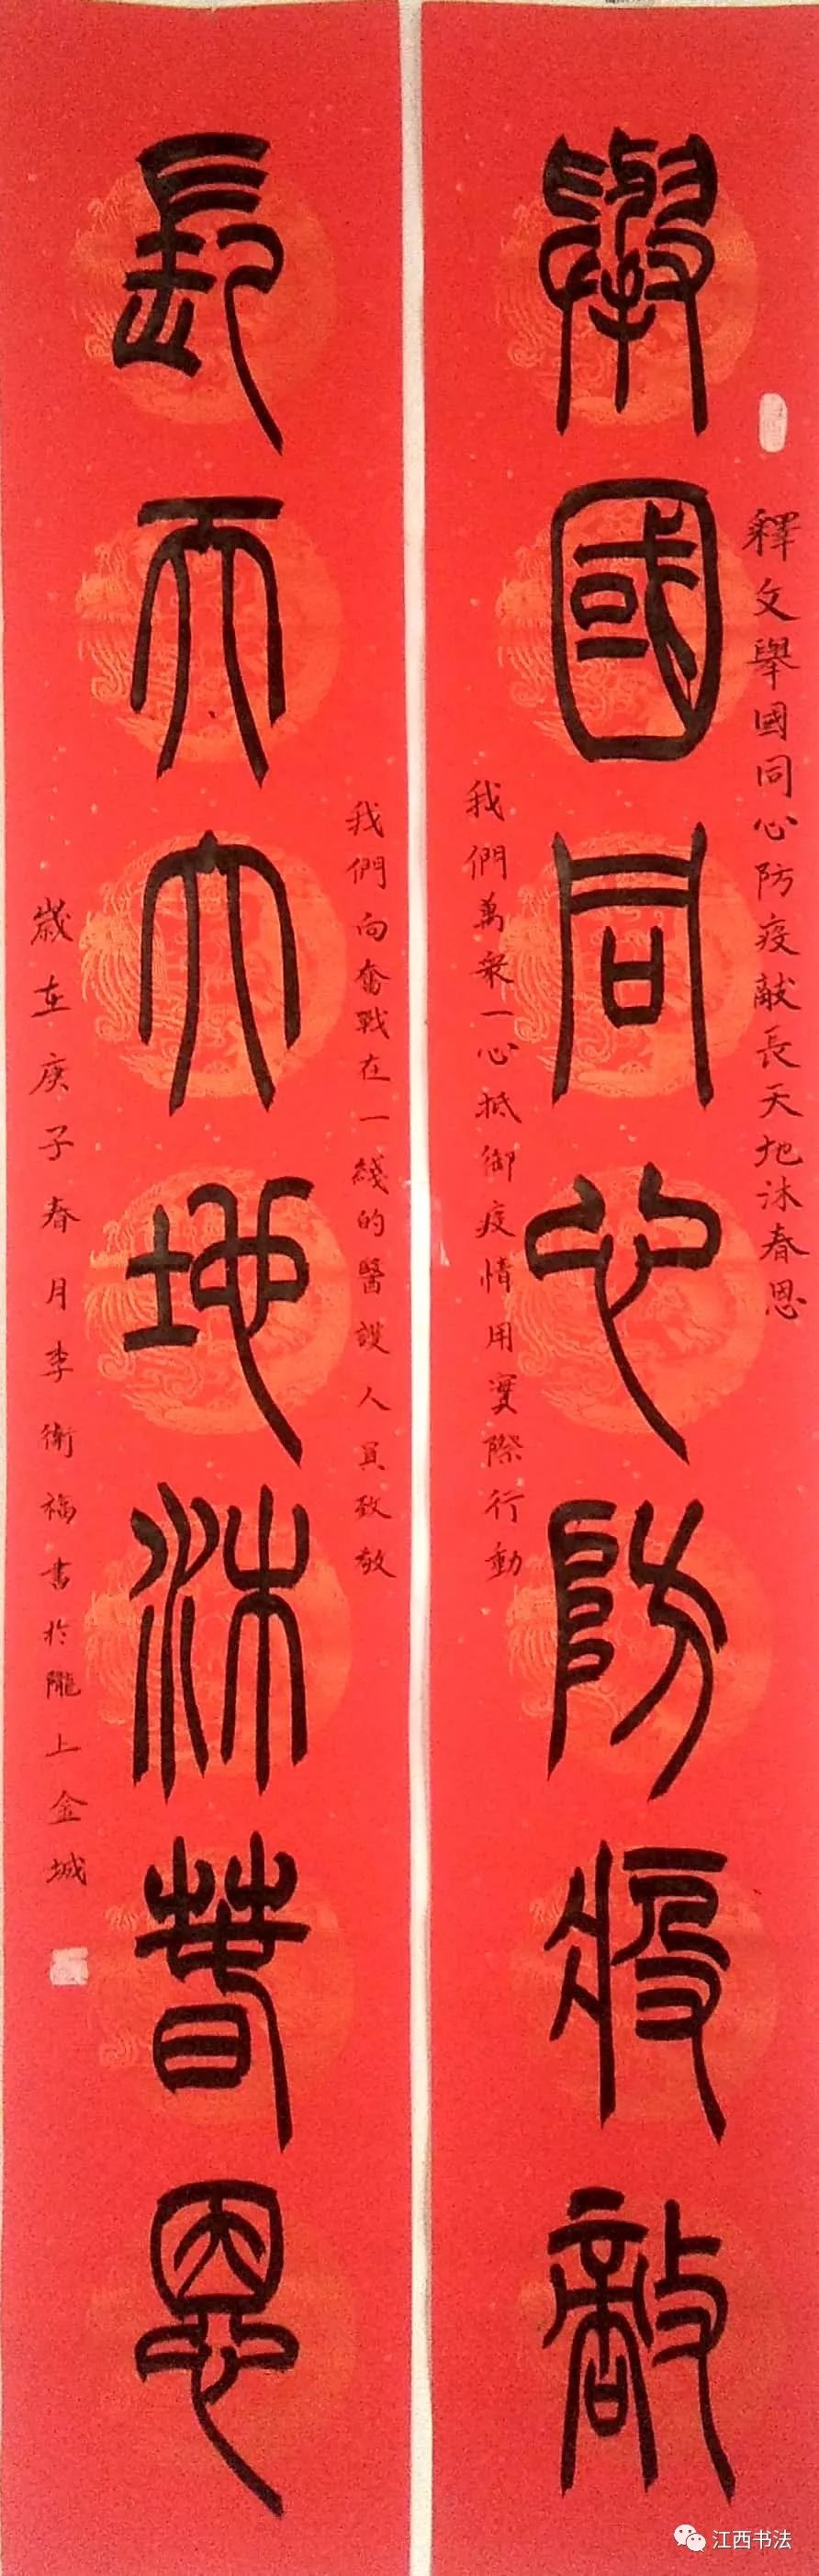 釋文舉國同心防疫敵長天地沐春恩
舉國同心防疫敵
我們萬衆一心抵御疫情用實際行動
我們向奮戰在一綫的醫護人員致敬
長天大地沐春恩
歲在庚子春月李衛福書於隴上金城
江西书法